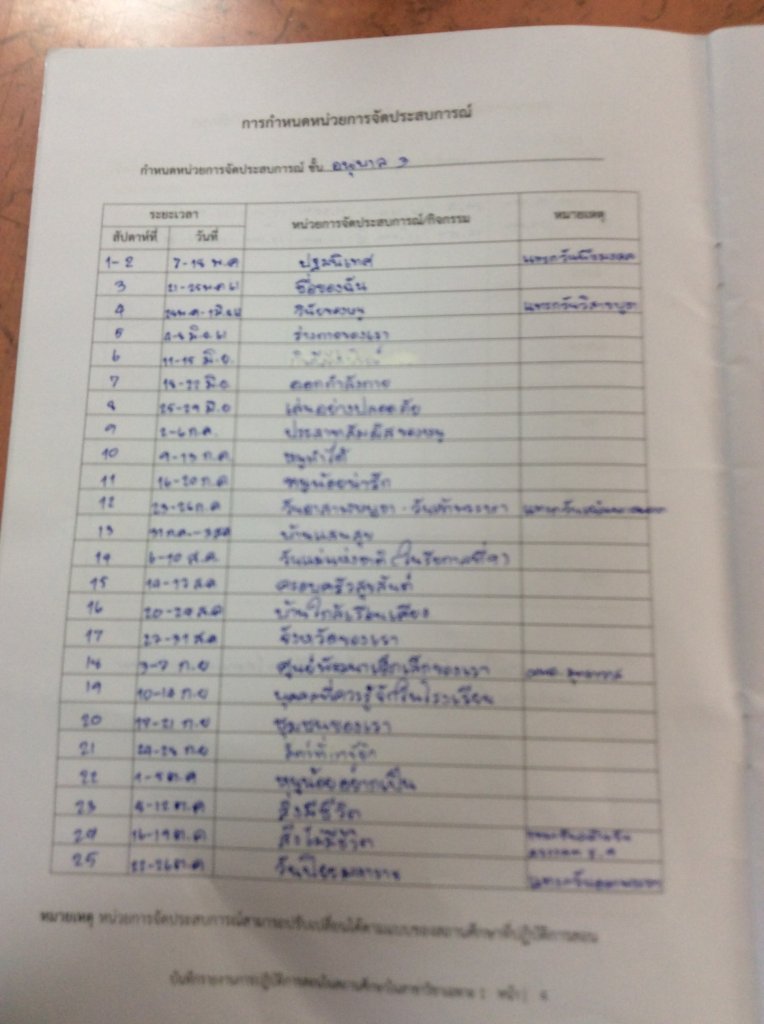 การกำหนดหน่วยการจัดประสบการณ์
กำหนดหน่วยการจัดประสบการณ์ ชั้น อนุบาล
ระยะเวลา หน่วยการจัดประสบการณ์/กิจกรรม หมายเหตุ
สัปดาห์ที่ วันที่
1-2 7-18 พ.ค ปฐมนิเทศ แทรกวันพืชมงคล
3 21-25 พ.ค 61 ชื่อของฉัน
4 แทรกวันวิสาขบูชา
5 4-8 มิ.ย 61 ร่างกายของเรา
6 11-15 มิ.ย.
7 18-22 มิ.ย ออกกำลังกาย
8 25-29 มิ.ย เล่นอย่างปลอดภัย
9 2-6 ก.ค. ประสาทสัมผัสของหนู
10 9-13 ก.ค หนูทำได้
11 16-20 ก.ค หนูน้อยน่ารัก
12 23-26 ก.ค วันอาสาฬหบูชา - วันเข้าพรรษา
13 31 ก.ค. - 3 ส.ค บ้านแสนสุข
14 6-10 ส.ค. วันแม่แห่งชาติ (ในรัชกาลที่ 9)
15 14-17 ส.ค ครอบครัวสุขสันต์
16 20-24 ส.ค บ้านใกล้เรือนเคียง
17 27-31 ส.ค จังหวัดของเรา
18 3-7 ก.ย ศูนย์พัฒนาเด็กเล็กของเรา
19 10-14 ก.ย บุคคลที่ควรรู้จักในโรงเรียน
20 17-21 ก.ย ชุมชนของเรา
21 24-28 ก.ย
22 1-5 ต.ค หนูน้อยอยากเป็น
23 8-12 ต.ค สิ่งมีชีวิต
24 16-19 ต.ค สิ่งไม่มีชีวิต
25 22-26 ต.ค วันปิยมหาราช
หมายเหตุ หน่วยการจัดประสบการณ์สามารถปรับเปลี่ยนได้ตามแบบของสถานศึกษาที่ปฏิบัติการสอน
บันทึกรายงานการปฏิบัติการสอนในสถานศึกษาในสาขาวิชาเฉพาะ 1 หน้า |